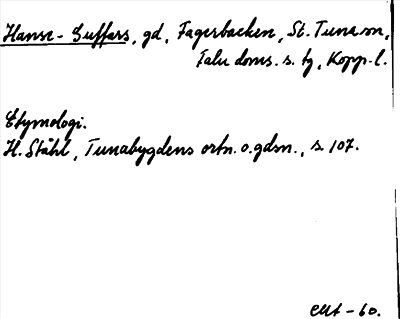 Hansc-Guffars, gd, Fagerbacken, St. Tuna sn,
Falu doms. s. tg, Kopp. l.
Etymologi.
H. Ståhl, Tunabygdens ortn. o. gdsn., s. 107.
- 60.